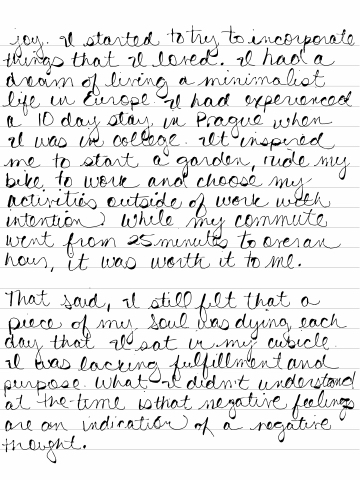 joy. I started to try to incorporate
things that I loved. I had a
dream of living a minimalist
life in Europe. I had experienced
a 10 day stay in Prague when
I was in college. It inspired
me to start a garden, ride my
bike to work and choose my
activities outside of work with
intention. While my commute
went from 25 minutes to over an
hour, it was worth it to me.
That said, I still felt that a
piece of my soul was dying each
day that I sat in my cubicle
I was lacking fulfillment and
purpose. What I didn't understand
at the time is that negative feelings
are an indication of a negative
thought.